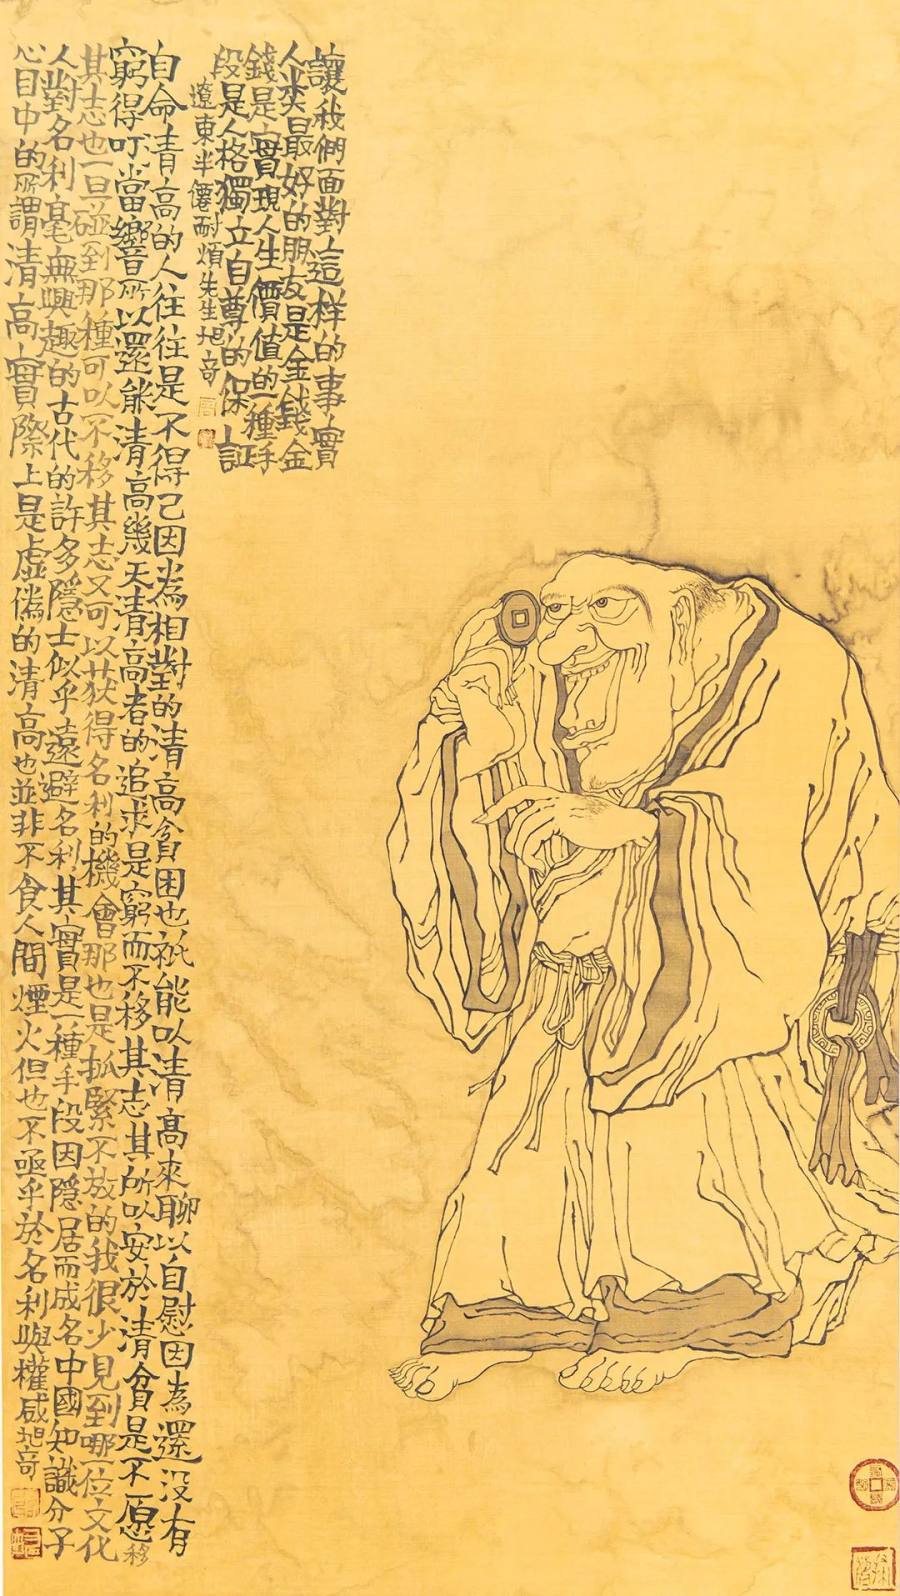 讓我們面對這样的事實
人类最好的朋友是金錢金
錢是實現人生價值的一種手
段是人格獨立自尊的保証
遼東半僊耐煩先生旭奇
自命清高的人往往是不得已因為相對的清高貧困也衹能以清高來聊以自慰因為還没有
窮得叮當響所以還能清高幾天清高者的追求是窮而不移其志其所以安於清貧是不愿移
其志也一旦碰到那種可以不移其志又可以获得名利的機會那也是抓緊不放的我很少見到哪一位文化
人對名利毫無興趣的古代的許多隱士似乎遠避名利其實是一種手段因隱居而成名中國知識分子
心目中的所謂清高實際上是虛僞的清高也並非不食人間煙火但也不亟乎於名利與權威旭奇